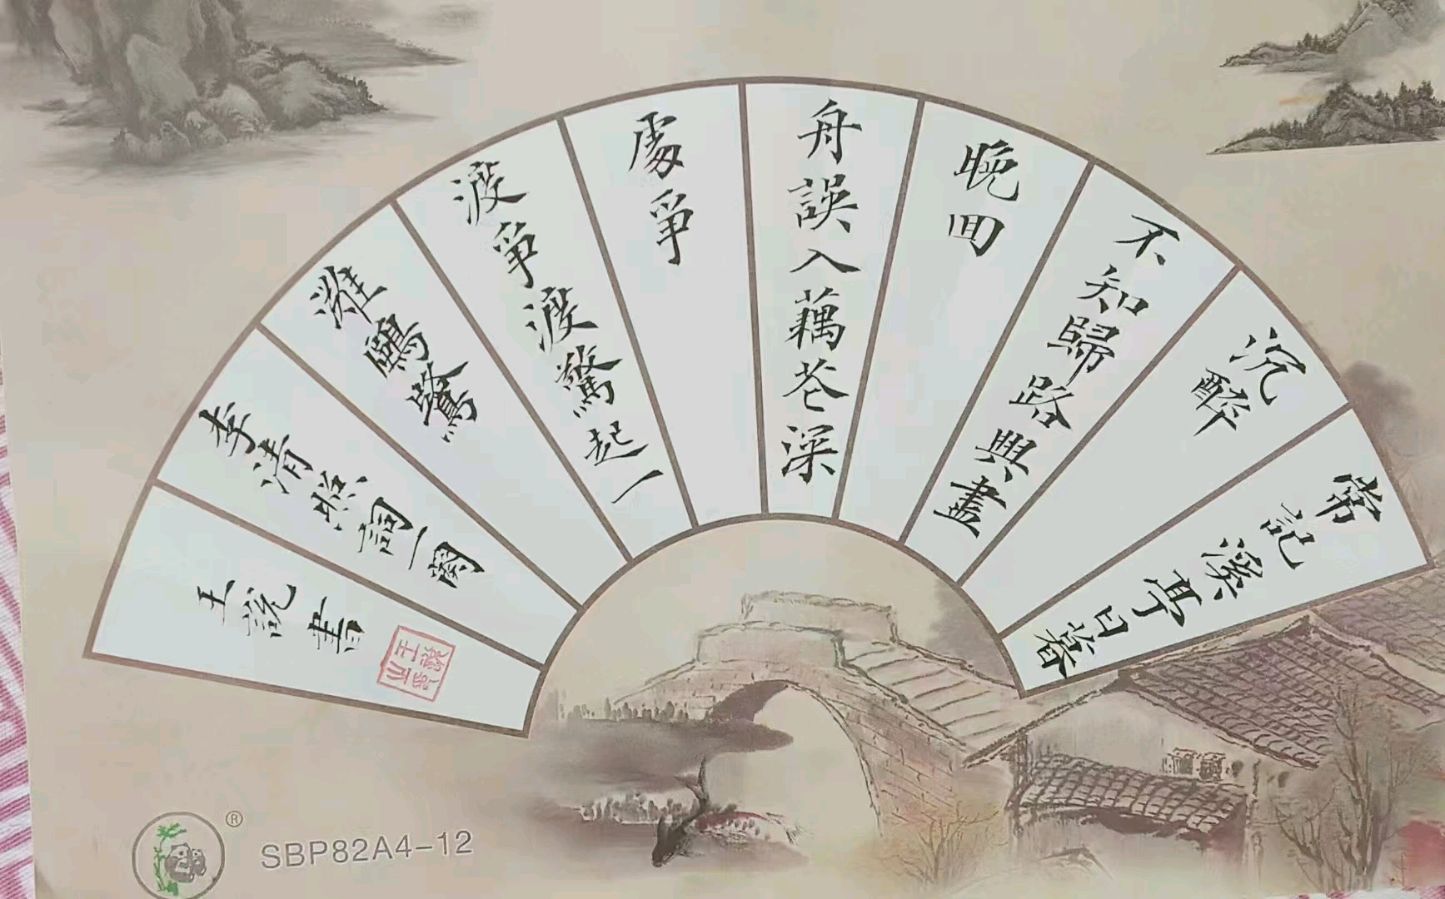 常記溪亭日暮
沉醉
不知歸路興盡
晚回
舟誤入藕花深
處爭
渡爭渡驚起一
灘鷗鷺
李清照詞一闋
王說書
® SBP82A4-12